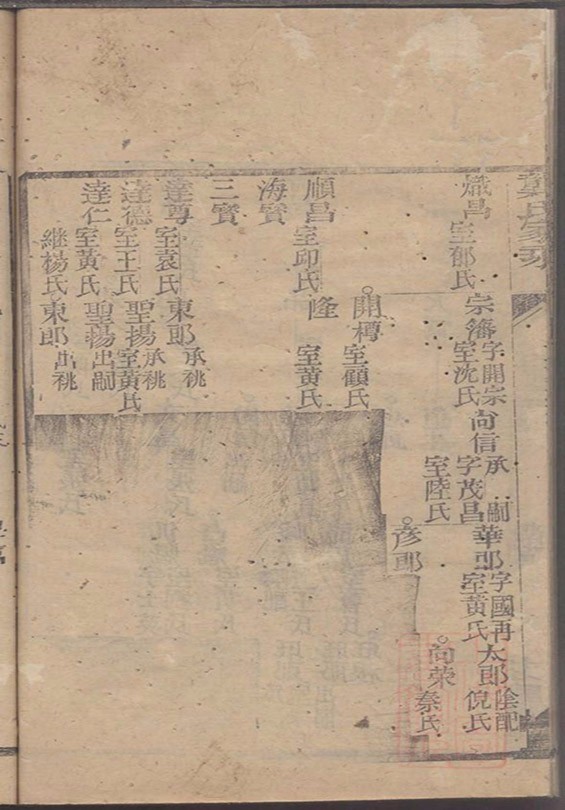 熾昌室郁氏
宗藩字開宗室沈氏
尚信承嗣字茂昌室陸氏
華郎字國再室黃氏
太郎陰配倪氏
向荣秦氏
彦郎
順昌室邱氏
開樽室顧氏
隆室黃氏
海賢
三賢
達尊室袁氏
東郎承祧
達德室王氏
聖揚承祧室黃氏
達仁室黃氏継楊氏
聖揚出嗣
東郎出祧